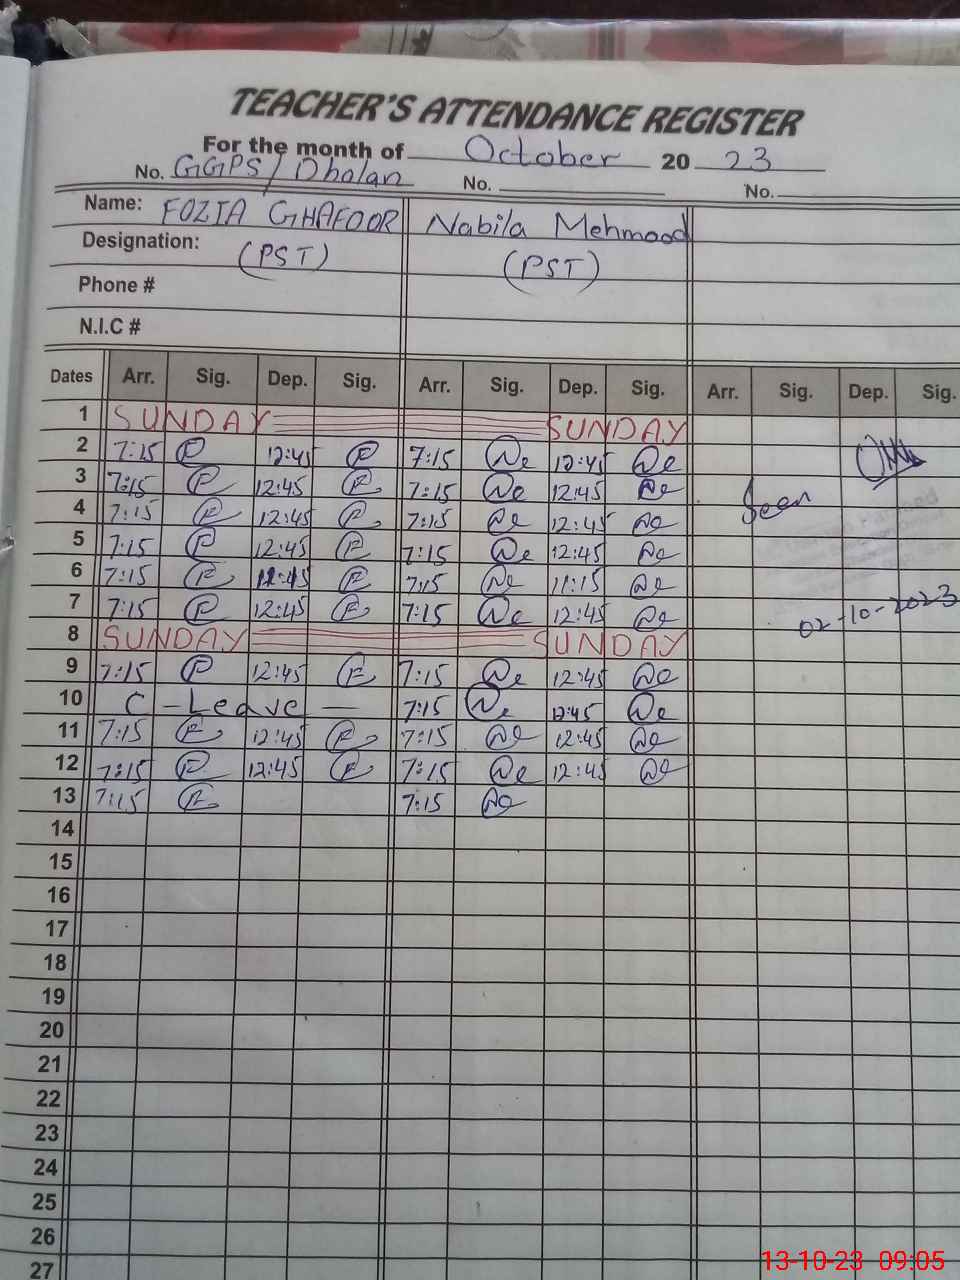 TEACHER'S ATTENDANCE REGISTER
For the month of October 20 23
No. GGPS/Dholan No. No.
Name: FOZIA GHAFOOR Nabila Mehmood
Designation: (PST) (PST)
Phone #
N.I.C #
Dates Arr. Sig. Dep. Sig. Arr. Sig. Dep. Sig. Arr. Sig. Dep. Sig.
1 SUNDAY SUNDAY
2 7:15 F 12:45 F 7:15 Ne 12:45 Ne
3 7:15 F 12:45 F 7:15 Ne 12:45 Ne Seen
4 7:15 F 12:45 F 7:15 Ne 12:45 Ne
5 7:15 F 12:45 F 7:15 Ne 12:45 Ne
6 7:15 F F 7:15 Ne 11:15 Ne
7 7:15 F 12:45 F 7:15 Ne 12:45 Ne 02-10-2023
8 SUNDAY SUNDAY
9 7:15 F 12:45 F 7:15 Ne 12:45 Ne
10 C - Leave — 7:15 Ne 12:45 Ne
11 7:15 F 12:45 F 7:15 Ne 12:45 Ne
12 7:15 F 12:45 F 7:15 Ne 12:45 Ne
13 7:15 F 7:15 Ne
14
15
16
17
18
19
20
21
22
23
24
25
26
27
13-10-23 09:05